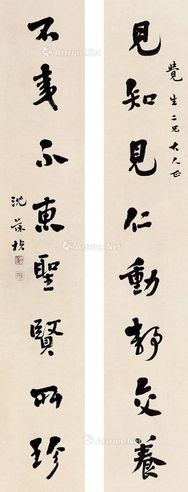 見知見仁動靜交養
覺生二兄大人正
不夷不惠聖賢所珍
沈葆楨